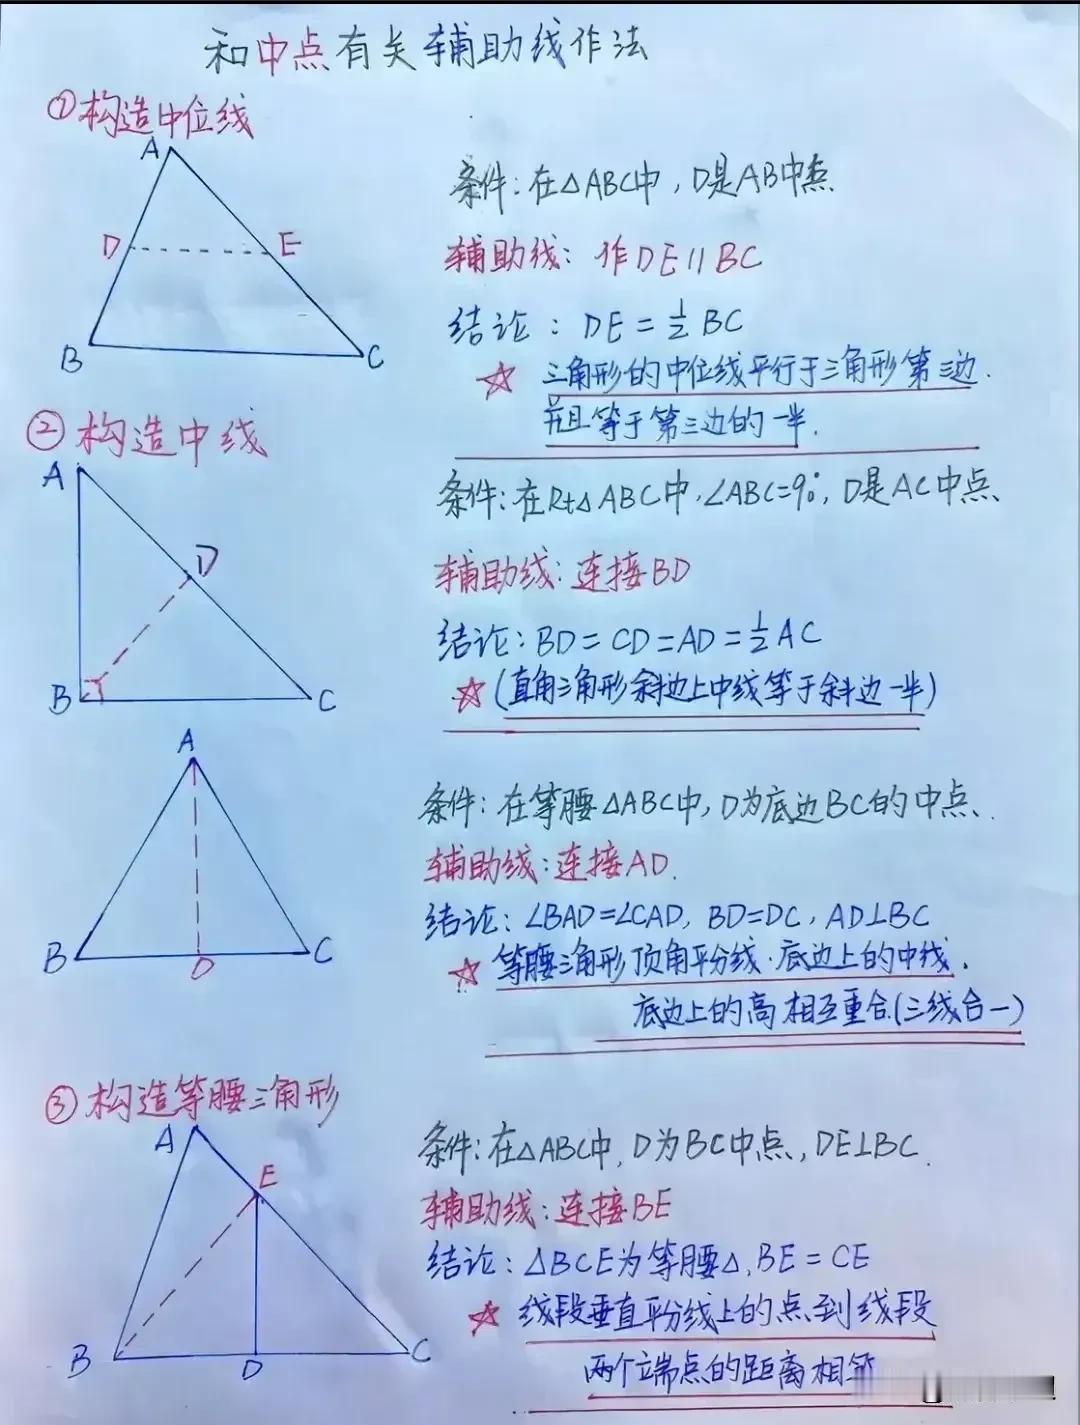 和中点有关辅助线作法
①构造中位线
A
D
E
B
C
条件:在△ABC中,D是AB中点.
辅助线:作DE∥BC
结论:DE=½BC
☆ 三角形的中位线平行于三角形第三边.
并且等于第三边的一半.
②构造中线
A
D
B
C
条件:在Rt△ABC中,∠ABC=90°,D是AC中点.
辅助线:连接BD
结论:BD=CD=AD=½AC
☆(直角三角形斜边上中线等于斜边一半)
A
B
D
C
条件:在等腰△ABC中,D为底边BC的中点.
辅助线:连接AD.
结论:∠BAD=∠CAD, BD=DC, AD⊥BC
☆ 等腰三角形顶角平分线.底边上的中线.
底边上的高相互重合(三线合一)
③构造等腰三角形
A
E
B
D
C
条件:在△ABC中,D为BC中点,DE⊥BC.
辅助线:连接BE
结论:△BCE为等腰△,BE=CE
☆ 线段垂直平分线上的点到线段
两个端点的距离相等